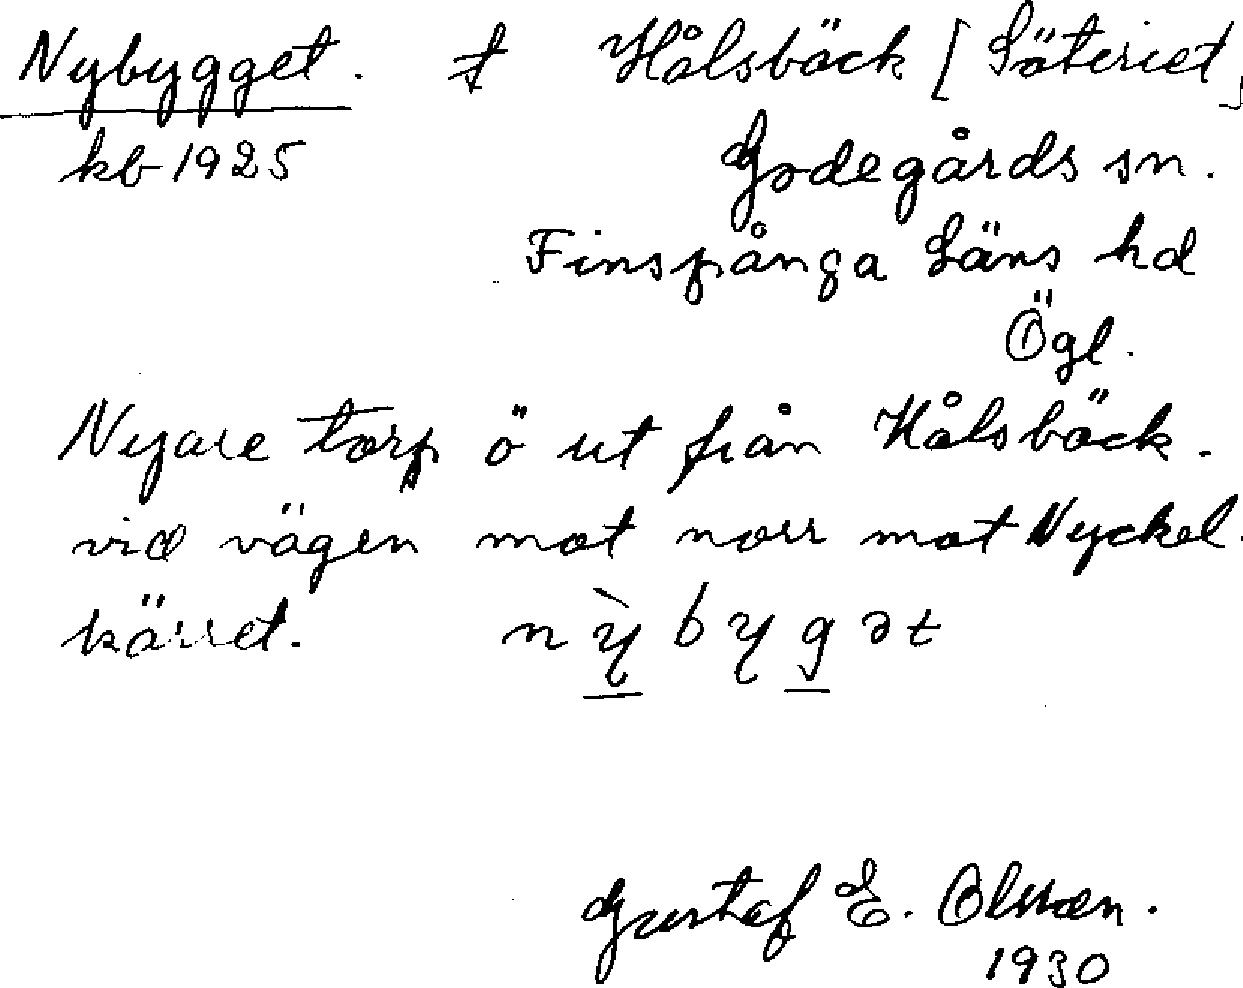 Nybygget. t Hålsbäck [Säteriet]
kb 1925 Godegårds sn.
Finspånga Läns hd
Ögl.
Nyare torp ö ut från Hålsbäck.
vid vägen mot norr mot Nyckel-
kärret. nỳbygət
Gustaf E. Olsson.
1930